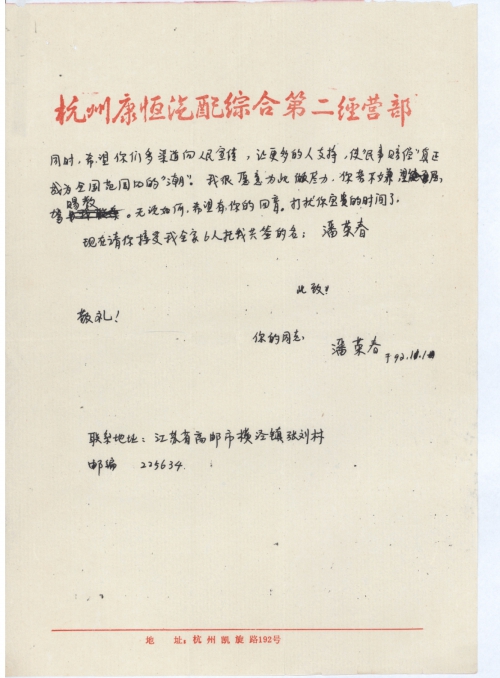 杭州康恒汽配综合第二经营部
同时,希望你们多渠道向人民宣传,让更多的人支持,使"民事赔偿"真正
成为全国范围的"潮"。我很愿意为此做尽力,你若不嫌
请赐教。无论如何,希望有你的回音。打扰你宝贵的时间了。
现在请你接受我全家6人托我共签的名:潘荣春
此致!
敬礼!
你的同志
潘荣春
于92.10.1
联系地址:江苏省高邮市横泾镇张刘村
邮编 225634
地 址:杭州凯旋路192号